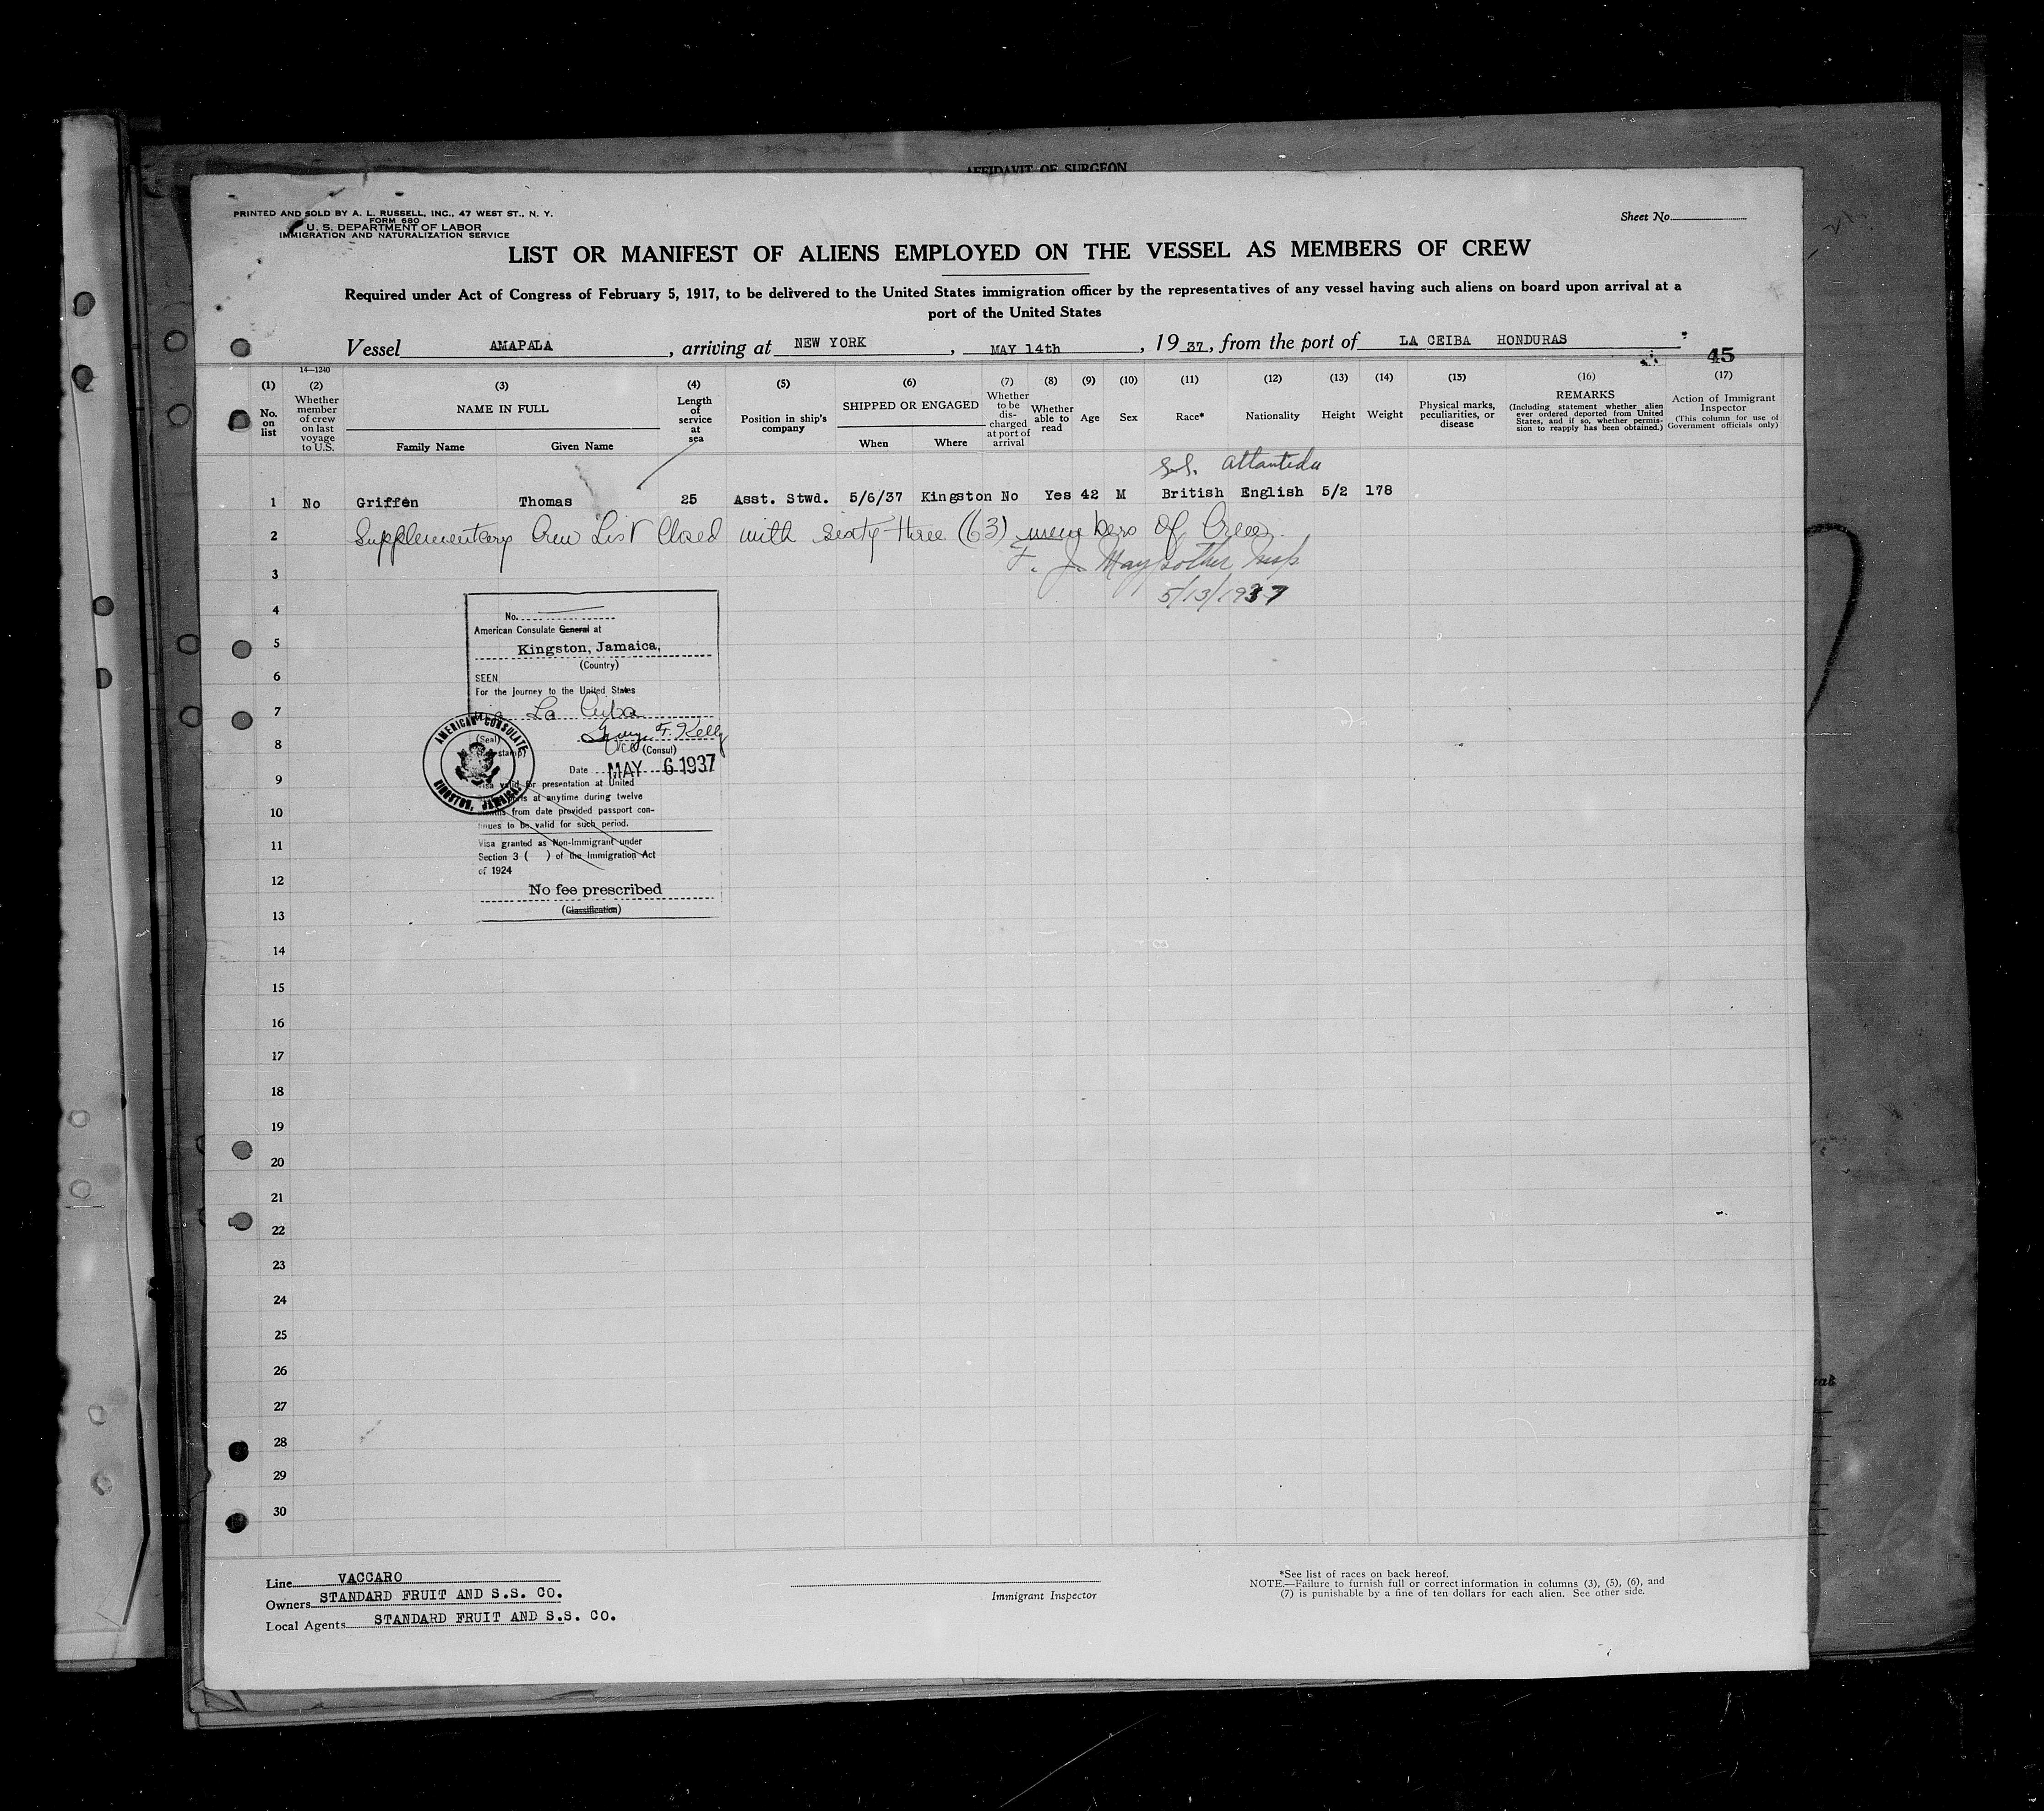 AFFIDAVIT OF SURGEON
PRINTED AND SOLD BY A. L. RUSSELL, INC., 47 WEST ST., N. Y.
FORM 680
U. S. DEPARTMENT OF LABOR
IMMIGRATION AND NATURALIZATION SERVICE
Sheet No.
LIST OR MANIFEST OF ALIENS EMPLOYED ON THE VESSEL AS MEMBERS OF CREW
Required under Act of Congress of February 5, 1917, to be delivered to the United States immigration officer by the representatives of any vessel having such aliens on board upon arrival at a
port of the United States
Vessel AMAPALA, arriving at NEW YORK, MAY 14th, 19 37, from the port of LA CEIBA HONDURAS
45
14—1240
(1) No. on list
(2) Whether member of crew on last voyage to U.S.
(3) NAME IN FULL
Family Name Given Name
(4) Length of service at sea
(5) Position in ship's company
(6) SHIPPED OR ENGAGED
When Where
(7) Whether to be discharged at port of arrival
(8) Whether able to read
(9) Age
(10) Sex
(11) Race*
(12) Nationality
(13) Height
(14) Weight
(15) Physical marks, peculiarities, or disease
(16) REMARKS
(Including statement whether alien ever ordered deported from United States, and if so, whether permission to reapply has been obtained.)
(17) Action of Immigrant Inspector
(This column for use of Government officials only)
S.S. Atlantida
1 No Griffen Thomas 25 Asst. Stwd. 5/6/37 Kingston No Yes 42 M British English 5/2 178
2 Supplementary Crew List Closed with sixty-three (63) members of Crew.
F. J. Maypother Insp
3
5/13/1937
4
5
6
7
8
9
10
11
12
13
14
15
16
17
18
19
20
21
22
23
24
25
26
27
28
29
30
No.
American Consulate General at
Kingston, Jamaica,
(Country)
SEEN
For the journey to the United States
La Ceiba
George F. Kelly
Vice (Consul)
(Seal)
AMERICAN CONSULATE
KINGSTON, JAMAICA.
Date MAY 6 1937
Visa valid for presentation at United
at anytime during twelve
months from date provided passport con-
tinues to be valid for such period.
Visa granted as Non-Immigrant under
Section 3 ( ) of the Immigration Act
of 1924
No fee prescribed
(Classification)
Line VACCARO
Owners STANDARD FRUIT AND S.S. CO.
Local Agents STANDARD FRUIT AND S.S. CO.
Immigrant Inspector
*See list of races on back hereof.
NOTE.—Failure to furnish full or correct information in columns (3), (5), (6), and
(7) is punishable by a fine of ten dollars for each alien. See other side.